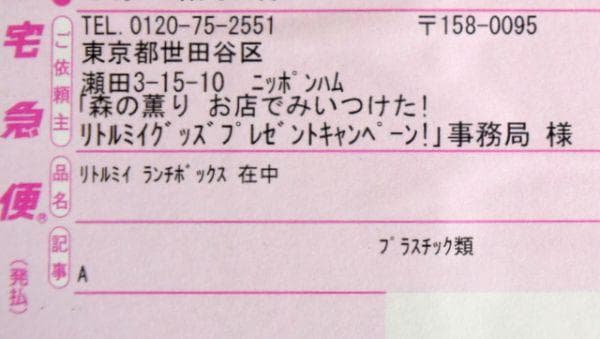 宅急便®
(発払)
ご依頼主
TEL.0120-75-2551 〒158-0095
東京都世田谷区
瀬田3-15-10 ﾆｯﾎﾟﾝﾊﾑ
「森の薫り お店でみいつけた!
ﾘﾄﾙﾐｲｸﾞｯｽﾞﾌﾟﾚｾﾞﾝﾄｷｬﾝﾍﾟｰﾝ!」事務局 様
品名
ﾘﾄﾙﾐｲ ﾗﾝﾁﾎﾞｯｸｽ 在中
記事
ﾌﾟﾗｽﾁｯｸ類
A